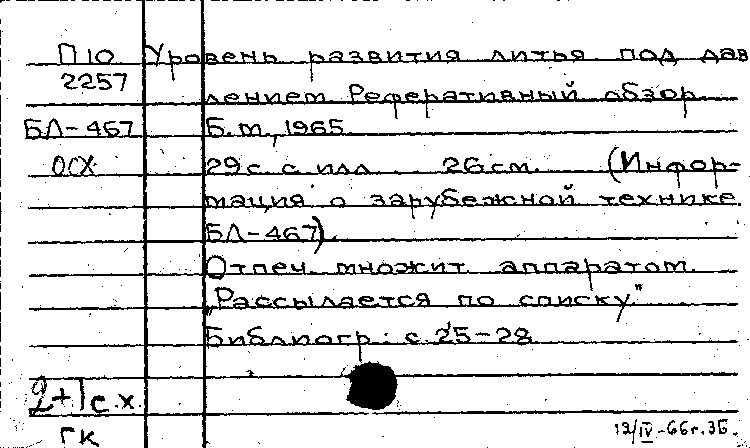 П10 Уровень развития литья под дав
2257
лением Реферативный обзор
БЛ-467 Б.м., 1965
ОСХ 29 с. с илл. 26 см. (Инфор-
мация о зарубежной технике
БЛ-467).
Отпеч. множит. аппаратом.
„Рассылается по списку"
Библиогр.: с. 25-28
2+1 с.х.
ГК
12/IV-66г. ЗБ.